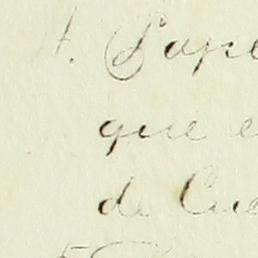 4. Pape
que e
de Cue
5